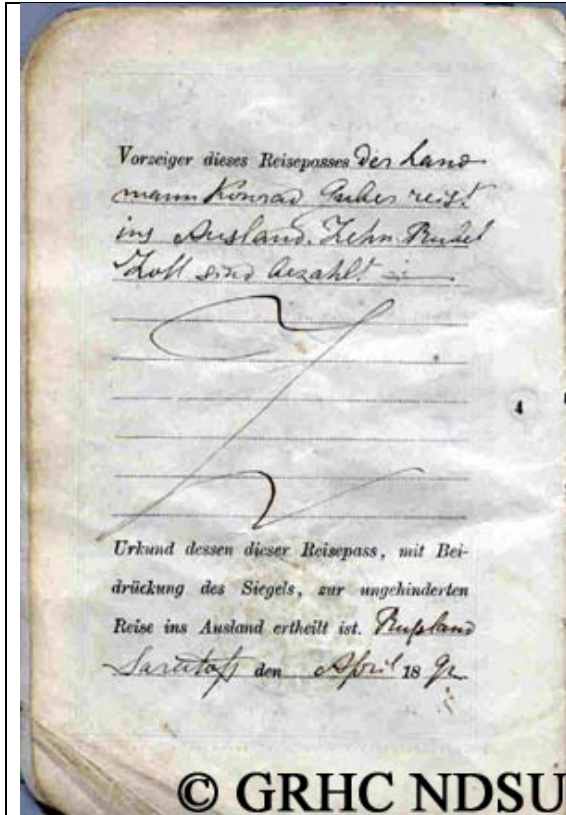 Vorzeiger dieses Reisepasses der Land-
mann Konrad reist
ins Ausland. Zehn Rubel
Zoll sind bezahlt
4
Urkund dessen dieser Reisepass, mit Bei-
drückung des Siegels, zur ungehinderten
Reise ins Ausland ertheilt ist. Rußland
Saratoff den April 18 92
© GRHC NDSU